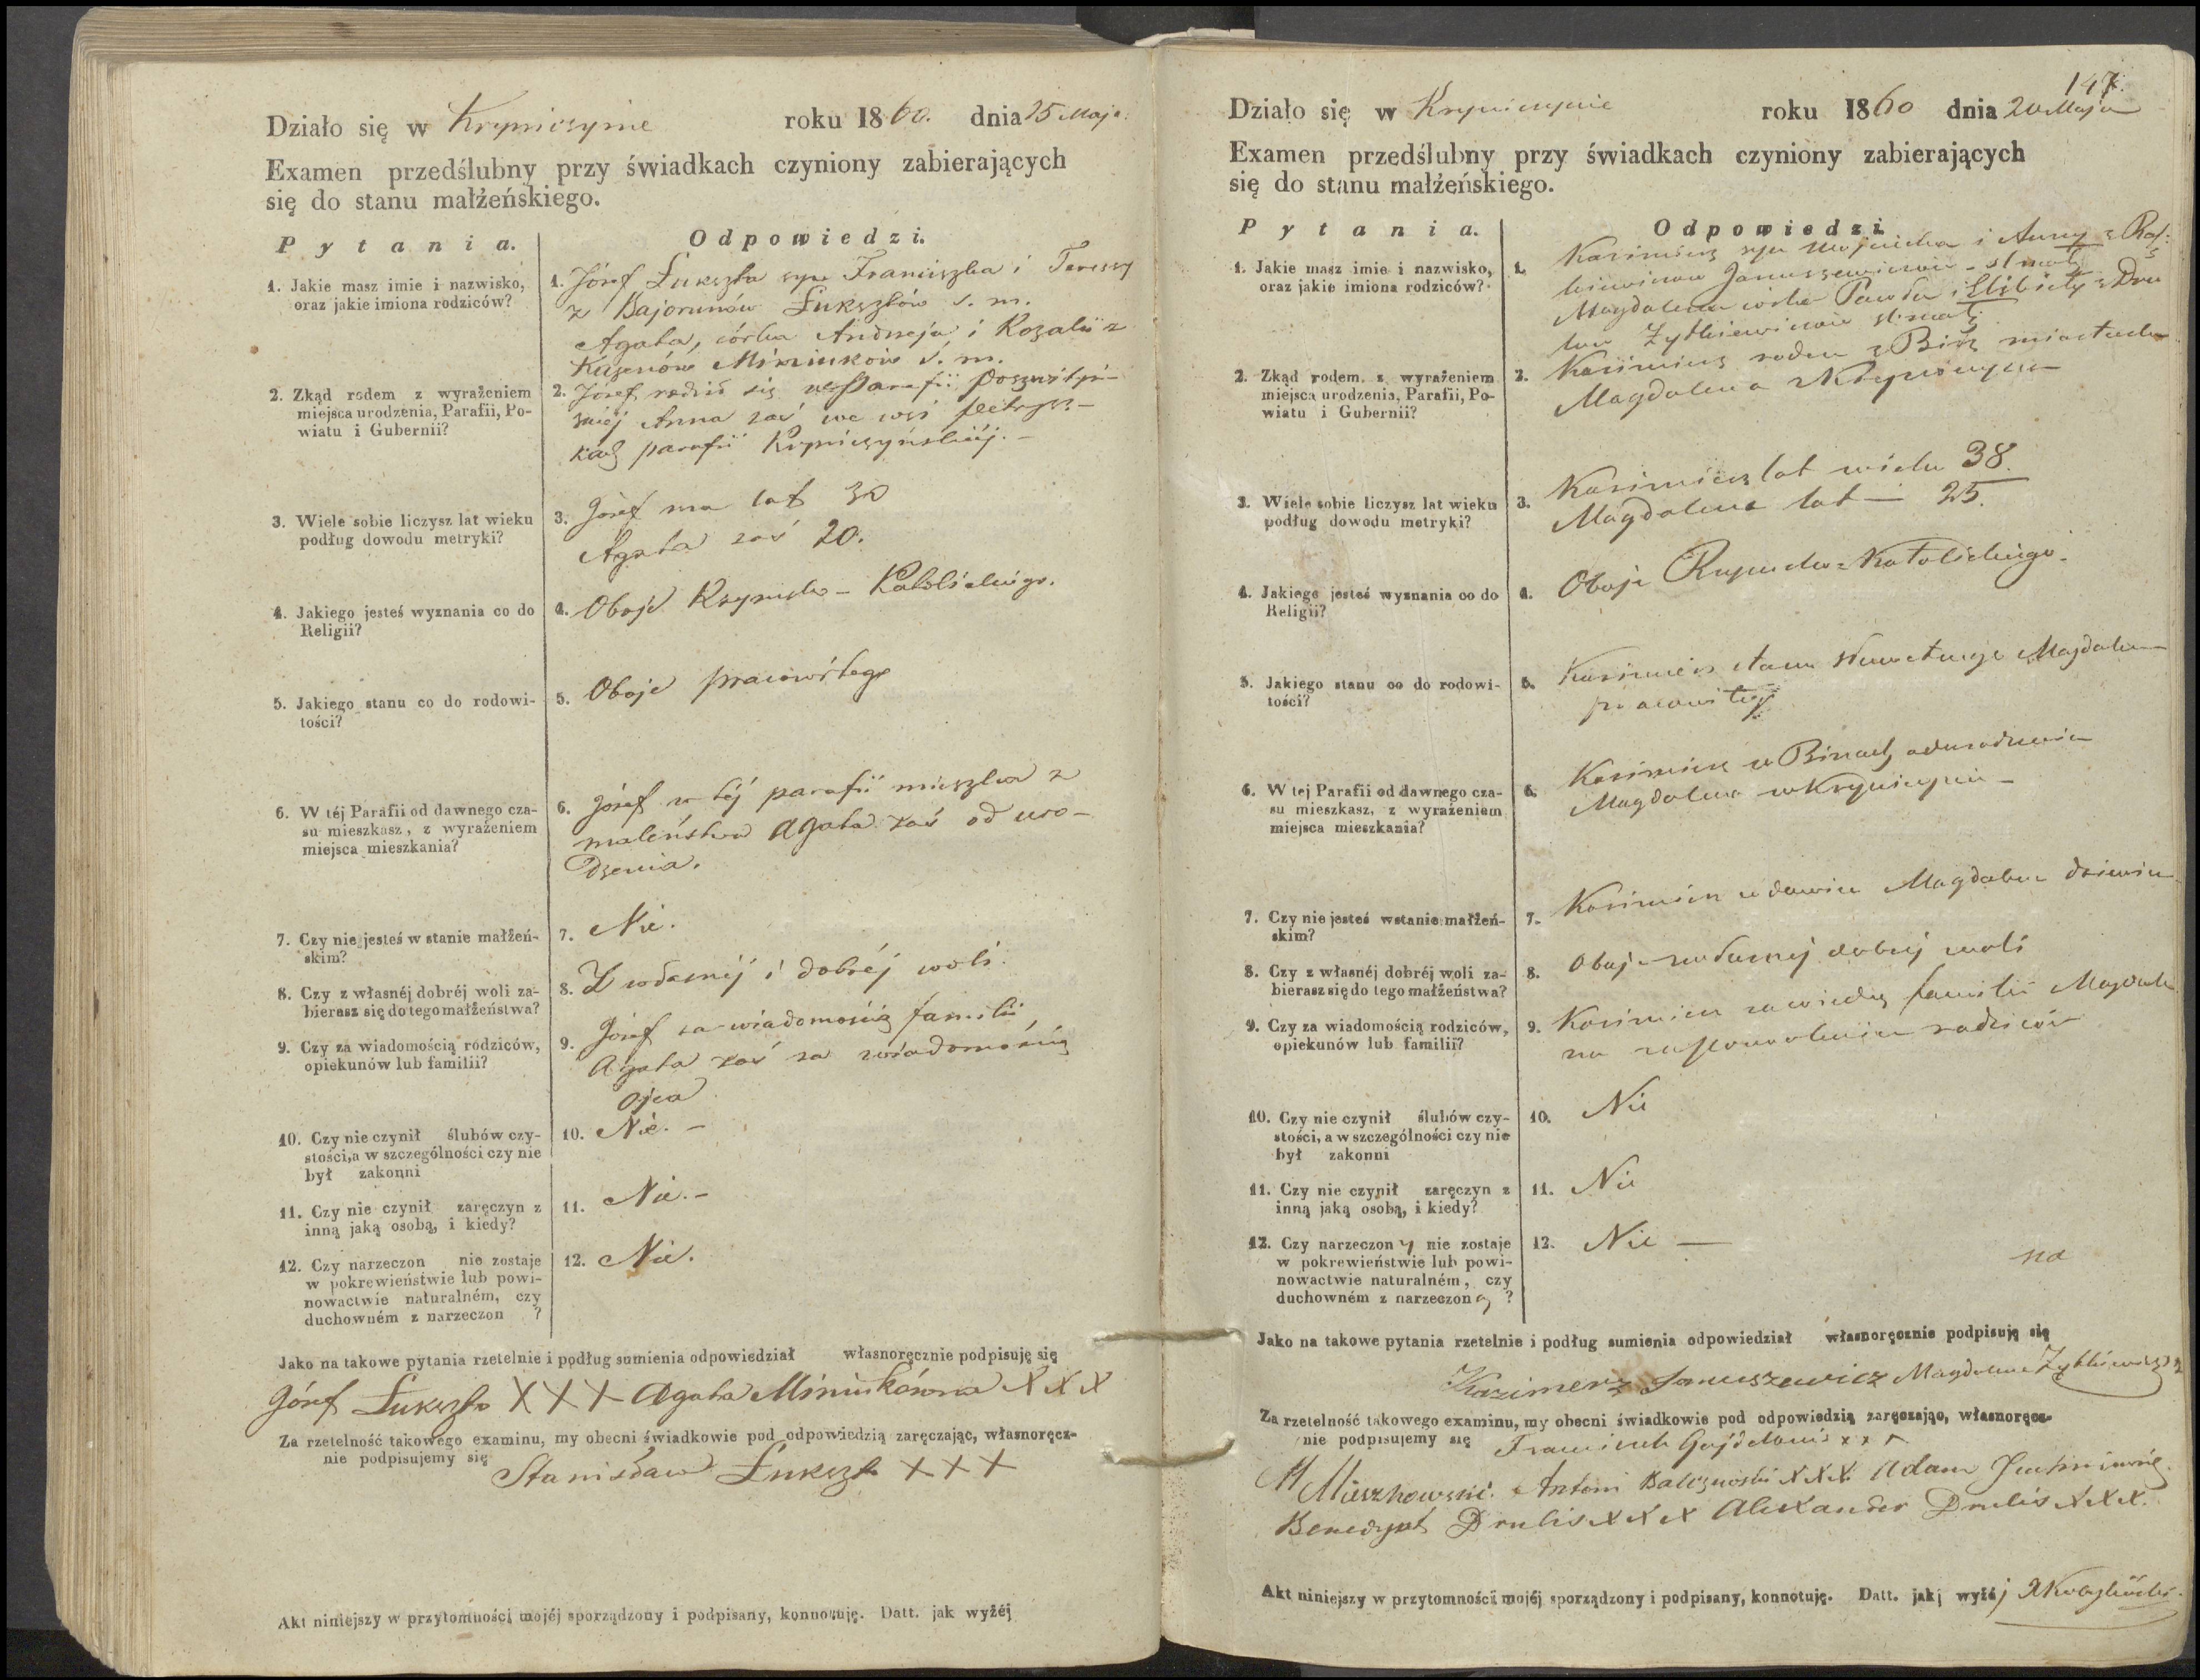 Działo się w Kryniczynie roku 1860. dnia 25 Maja.
Examen przedślubny przy świadkach czyniony zabierających
się do stanu małżeńskiego.
Pytania. Odpowiedzi.
1. Jakie masz imie i nazwisko,
oraz jakie imiona rodziców?
1. Józef Łukszta syn Franciszka i Teressy
z Bajorunów Łuksztów s. m.
Agata, córka Andrzeja i Rozalii z
Miniuków s. m.
2. Zkąd rodem z wyrażeniem
miejsca urodzenia, Parafii, Po-
wiatu i Gubernii?
2. Józef rodził się w Parafii
Anna zaś we wsi
parafii Kryniczyńskiéj. -
3. Wiele sobie liczysz lat wieku
podług dowodu metryki?
3. Józef ma lat 30
Agata zaś 20.
4. Jakiego jesteś wyznania co do
Religii?
4. Oboje Rzymsko - Katolickiego.
5. Jakiego stanu co do rodowi-
tości?
5. Oboje pracowitego
6. W téj Parafii od dawnego cza-
su mieszkasz, z wyrażeniem
miejsca mieszkania?
6. Józef w téj parafii mieszka z
maleństwa Agata zaś od uro-
dzenia.
7. Czy nie jesteś w stanie małżeń-
skim?
7. Nie.
8. Czy z własnéj dobréj woli za-
bierasz się do tego małżeństwa?
8. Z własnéj i dobréj woli.
9. Czy za wiadomością rodziców,
opiekunów lub familii?
9. Józef za wiadomością familii,
Agata zaś za wiadomością
ojca
10. Czy nie czynił ślubów czy-
stości, a w szczególności czy nie
był zakonni
10. Nie. -
11. Czy nie czynił zaręczyn z
inną jaką osobą, i kiedy?
11. Nie. -
12. Czy narzeczon nie zostaje
w pokrewieństwie lub powi-
nowactwie naturalném, czy
duchowném z narzeczon ?
12. Nie.
Jako na takowe pytania rzetelnie i podług sumienia odpowiedział własnoręcznie podpisuję się
Józef Łukszta XXX Agata Miniukówna XXX
Za rzetelność takowego examinu, my obecni świadkowie pod odpowiedzią zaręczając, własnoręcz-
nie podpisujemy się Stanisław Łukszta XXX
Akt niniejszy w przytomności mojéj sporządzony i podpisany, konnotuję. Datt. jak wyżéj
147.
Działo się w Kryniczynie roku 1860 dnia 20 Maja
Examen przedślubny przy świadkach czyniony zabierających
się do stanu małżeńskiego.
Pytania. Odpowiedzi.
1. Jakie masz imie i nazwisko,
oraz jakie imiona rodziców?
1. Kazimierz syn i Anny z
Januszewiczów
Magdalena córka Pawła i Elżbiety z
Żytkiewiczów
2. Zkąd rodem z wyrażeniem
miejsca urodzenia, Parafii, Po-
wiatu i Gubernii?
2. Kazimierz rodem z Birż miasteczka
Magdalena z Kryniczyna
3. Wiele sobie liczysz lat wieku
podług dowodu metryki?
3. Kazimierz lat wieku 38.
Magdalena lat - 25.
4. Jakiego jesteś wyznania co do
Religii?
4. Oboje Rzymsko-Katolickiego.
5. Jakiego stanu co do rodowi-
tości?
5. Kazimierz stanu Magdalena
pracowitego
6. W tej Parafii od dawnego cza-
su mieszkasz, z wyrażeniem
miejsca mieszkania?
6. Kazimierz w Birżach od urodzenia
Magdalena w Kryniczynie -
7. Czy nie jesteś w stanie małżeń-
skim?
7. Kazimierz wdowiec Magdalena
8. Czy z własnéj dobréj woli za-
bierasz się do tego małżeństwa?
8. Oboje z własnej dobrej woli
9. Czy za wiadomością rodziców,
opiekunów lub familii?
9. Kazimierz za wiedzą familii Magdale
na za pozwoleniem rodziców
10. Czy nie czynił ślubów czy-
stości, a w szczególności czy nie
był zakonni
10. Nie
11. Czy nie czynił zaręczyn z
inną jaką osobą, i kiedy?
11. Nie
12. Czy narzeczony nie zostaje
w pokrewieństwie lub powi-
nowactwie naturalném, czy
duchowném z narzeczoną ?
12. Nie —
na
Jako na takowe pytania rzetelnie i podług sumienia odpowiedział własnoręcznie podpisuję się
Kazimerz Januszewicz Magdalena
Za rzetelność takowego examinu, my obecni świadkowie pod odpowiedzią zaręczając, własnoręcz-
nie podpisujemy się Franciszek xxx
Mieszkowski. Antoni XXX Adam
Benedykt Drulis XXX Alexander Drulis XXX.
Akt niniejszy w przytomności mojéj sporządzony i podpisany, konnotuję. Datt. jak wyżéj